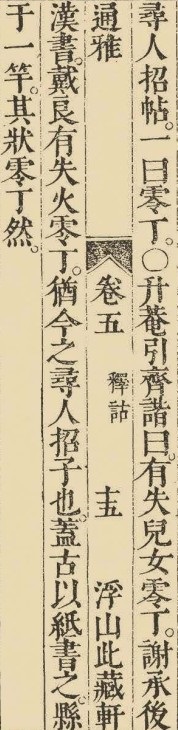 尋人招帖。一曰零丁。○升菴引齊諧曰。有失兒女零丁。謝承後
通雅 卷五 釋詁 十五 浮山此藏軒
漢書。戴良有失火零丁。猶今之尋人招子也。蓋古以紙書之。縣
于一竿。其狀零丁然。